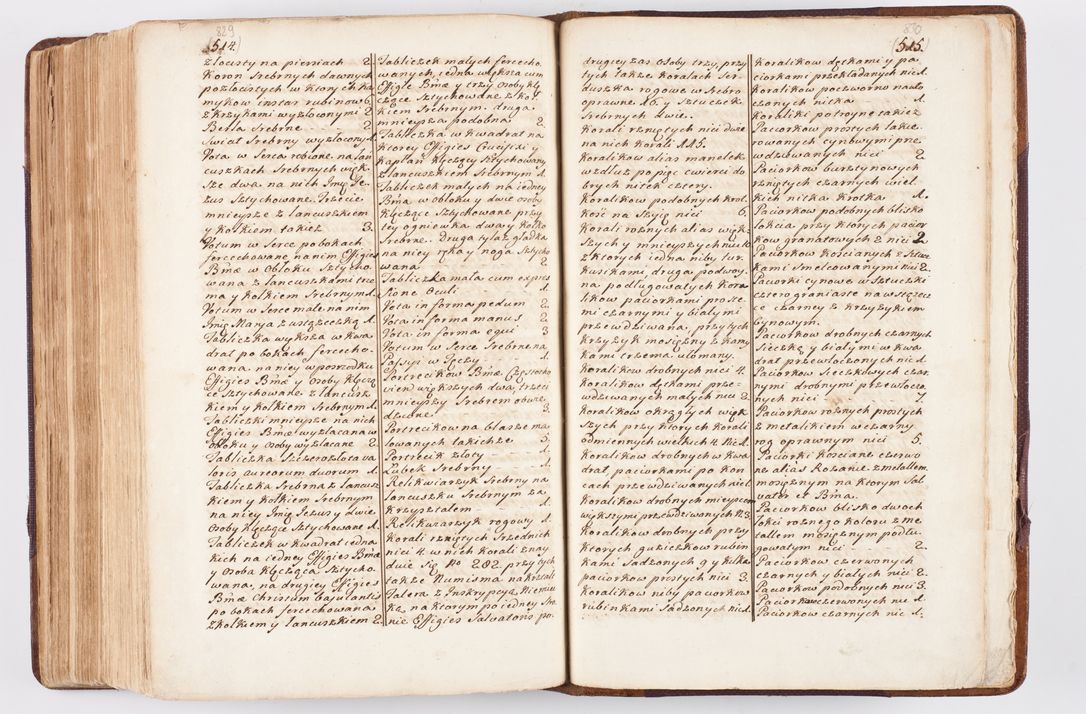 829
514.
złocisty na piersiach 2.
Koron Srebrnych dawnych
pozłocistych w ktorych ka
mykow instar rubinow 6.
z krzyżykami wyzłoconymi 2
Berła Srebrne 2
Swiat Srebrny wyzłocony 1.
Vota w Serca robione na łan
cuszkach Srebrnych więk
sze dwa na nich Imię Je
zus Sztychowane. Trzecie
mnieysze z łancuszkiem
y kołkiem takież 3.
Votum w Serce po bokach
ferecechowane na nim Effigies
B̃mæ w Obłoku Sztycho
wana z łancuszkami trze
ma y kołkiem Srebrnym 1.
Votum w Serce małe na nim
Imię Marya z wstążeczką 1.
Tabliczka większa w kwa
drat po bokach ferececho.
wana na niey w posrzodku
Effigies B̃mæ y Osoby klęczą
ce Sztychowane z łancusz
kiem y kołkiem Srebrnym 1.
Tabliczki mnieysze na nich
Effigies B̃mæ wyzłacana w
obłoku y osoby wyzłacane 2.
Tabliczka Szczerozłota va
loris aureorum duorum 1.
Tabliczka Srebrna z łancusz
kiem y kołkiem Srebrnym
na niey Imię Jezus y dwie
Osoby klęczące Sztychowane 1.
Tabliczek w kwadrat iedna
kich na iedney Effigies B̃mæ
y Osoba klęcząca Sztycho
wana, na drugiey Effigies
B̃mæ Christum bajulantis
po bokach ferecechowana
z kołkiem y łancuszkiem 2.
Tabliczek małych ferececho
wanych, iedna większa cum
Effigie B̃mæ y trzy osoby klę
czące Sztychowane z koł
kiem Srebrnym. druga
mnieysza podobna 2.
Tabliczka w kwadrat na
ktorey Effigies Crucifixi y
kapłan klęczący Sztychowany
z łancuszkiem Srebrnym 1.
Tabliczek małych na iedney
B̃mæ w obłoku y dwie osoby
klęczące Sztychowane przy
tey ogniewka dwa y kołko
Srebrne. Druga tylaż gładka
na niey ręka y noga Sztycho
wana 2.
Tabliczka mała cum expres
sione oculi 1.
Vota in forma pedum 2.
Vota in forma manus 2.
Vota in forma equi 3
Votum w Serce Srebrne na
Passyi w Tęczy 1.
Portrecikow B̃mæ Częstocho
vien większych dwa, trzeci
mnieyszy Srebrem obwie
dzione 3.
Portrecikow na blasze ma
lowanych takichże 5.
Portrecik złoty 1.
Lubek Srebrny 1.
Relikwiarzyk Srebrny na
łancuszku Srebrnym za
krzyształem 1.
Relikwiarzyk rogowy 1.
Korali rzniętych Srzednich
nici 4. w nich korali znay
duie się No 282. przy tych
także Numisma na kształt
Talera z Inskrypcyą Niemie
ką, na ktorym po iedney Stro
nie Effigies Salvatoris po.
830
515.
drugiey zas osoby trzy, przy
tych także koralach Ser
duszka rogowe w Srebro
oprawne 16. y Sztuczek
Srebrnych dwie.
Korali rzniętych nici dwie
na nich korali 115.
Koralikow alias manelek
wzdłuż po pięc cwierci do
brych nitek cztery.
Koralikow podobnych krot
kość na Szyię nici 6.
Korali roznych alias więk
szych y mnieyszych nici 10
z ktorych iedna niby tur
kuskami, druga podwoy.
na podługowatych kora
likow paciorkami proste
mi czarnymi y białymi
przewdziwana, przy tych
krzyżyk mosiężny z kamy
kami trzema ułomany.
Koralikow drobnych nici 4.
Koralikow dętkami prze
wdziwanych małych nici 2.
Koralikow okrągłych więk
szych przy ktorych korali
odmiennych wielkich 4. Nic 1.
Koralikow drobnych w kwa
drat paciorkami po kon
cach przewdziwanych nic 1.
Koralikow drobnych mieyscem
większymi przewdziwanych N 3.
Koralikow drobnych przy
ktorych guziczkow rubin
kami Sadzonych 9 y kilka
paciorkow prostych nici 3.
Koralikow niby paciorkow
rubinkami Sadzonych nic 1.
Koralikow dętkami y pa
ciorkami przekładanych nic 1.
Koralikow poczworno nawło
czonych nitka 1.
Koraliki potroyne także 1
Paciorkow prostych lakie.
rowanych cynowymi prze
wdziwanych nici 2.
Paciorkow bursztynowych
rzniętych czarnych wiel
kich nitka krotka 1.
Paciorkow podobnych blisko
łokcia przy ktorych pacior
kow granatowych 2 nici 2
Paciorkow kościanych z Sztucz
kami Smelcowanymi nici 2.
Paciorki cynowe w Sztuczki
cztero graniaste na wstążecz
ce czarney z krzyżykiem
cynowym.
Paciorkow drobnych czarnych
Sieczką y białymi w kwa
drat przewłoczonych nic 1.
Paciorkow Sieczkowych czar
nymi drobnymi przewłoczo.
nych nici 7.
Paciorkow roznych prostych
z metalikiem w czarny
rog oprawnym nici 5.
Paciorki kościane czerwo
ne alias Rozanie. z metallem
mosiężnym na ktorym Sal
vator et B̃ma.
Paciorkow blisko dwoch
łokci roznego koloru z me
tallem mosiężnym podłu
gowatym nici 2.
Paciorkow czerwonych
czarnych y białych nici 2.
Paciorkow podobnych nici 3.
Paciorkow czerwonych nic 1.
Paciorkow czarnych nic 1.